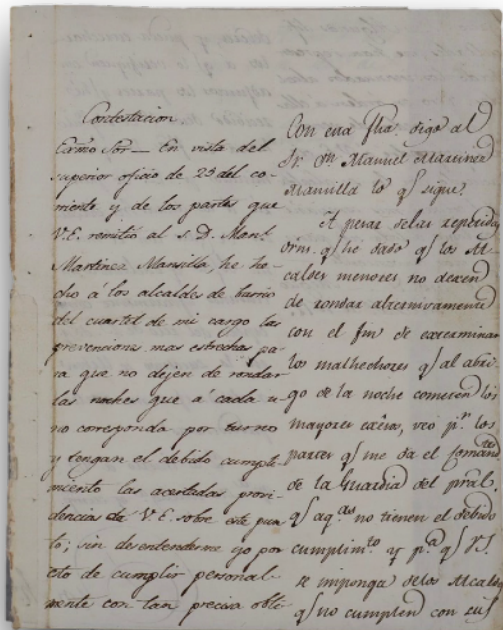 Contestacion
Exmo Sor — En vista del
superior oficio de 23 del co-
rriente y de los partes que
V.E. remitió al S. D. Manl.
Martinez Mansilla, he he-
cho á los alcaldes de barrio
del cuartel de mi cargo las
prevenciones mas estrechas pa-
ra que no dejen de rondar
las noches que á cada u-
no corresponda por turno
y tengan el debido cumpli-
miento las acertadas provi-
dencias de V.E. sobre este pun-
to; sin desentenderme yo por
eto de cumplir personal-
mente con tan precisa obli-
Con esta fha. digo al
Sr. Dn. Manuel Martinez
Mansilla lo q. sigue.
A pesar de las repetidas
orns. q. he dado q. los Al-
caldes menores no dexen
de rondar alternivamente
con el fin de exterminar
los malhechores q. al abri-
go de la noche cometen los
mayores exesos, veo pr. los
partes q. me da el Comandte.
de la Guardia del pral.
q. aq.os no tienen el debido
cumplimto. y pa. q. V.S.
se imponga de los Alcaldes
q. no cumplen con sus